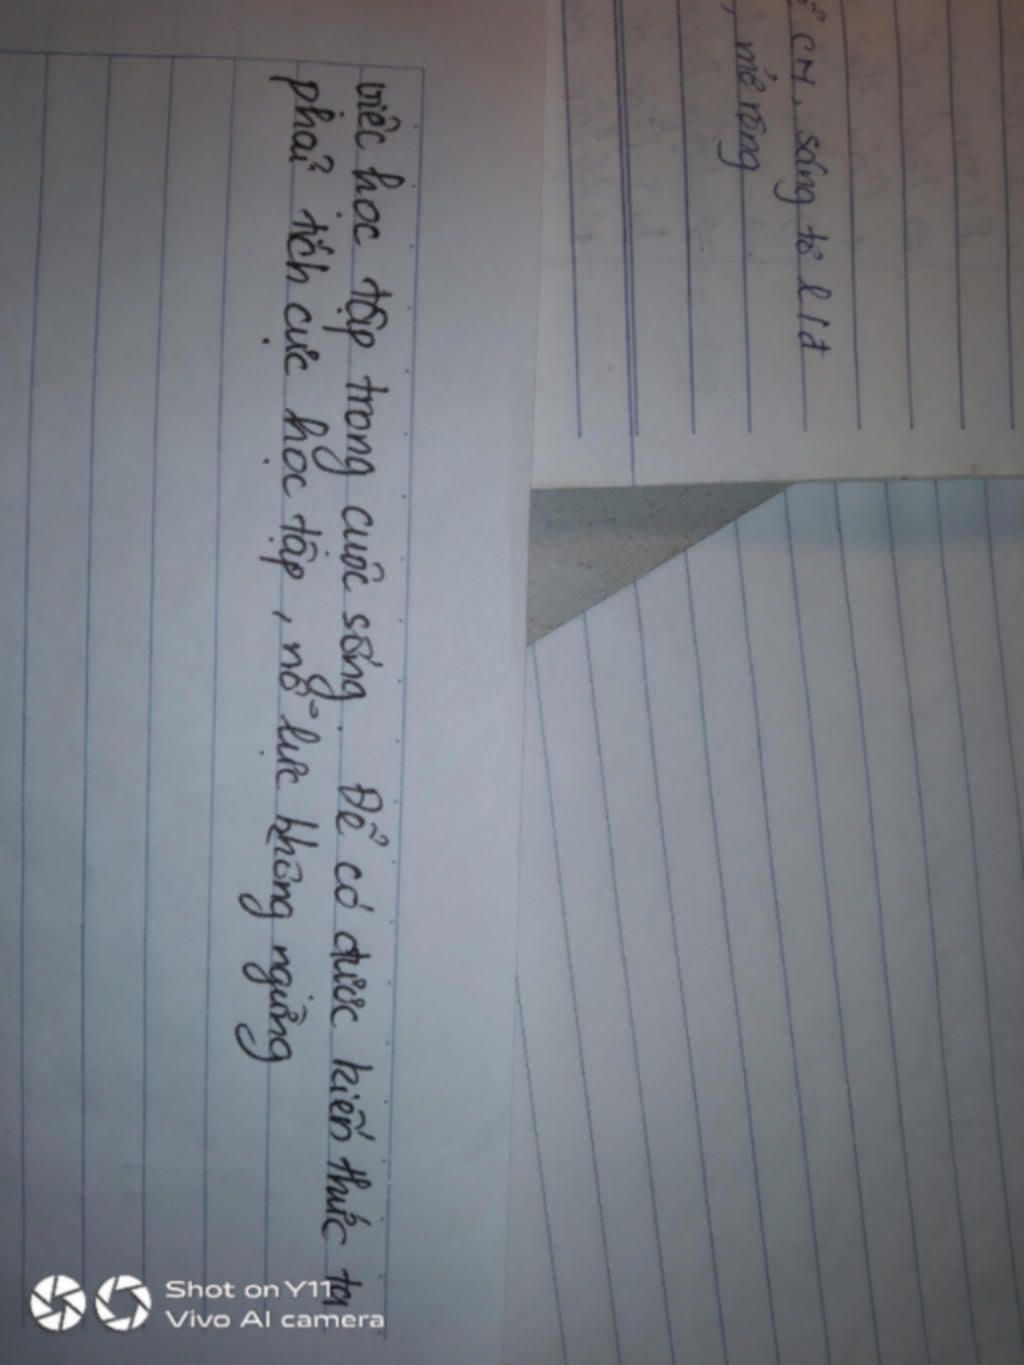 việc học tập trong cuộc sống. Để có được kiến thức ta
phải tích cực học tập, nỗ lực không ngừng
CM, sáng tỏ l lđ
, mở rộng
Shot on Y11
Vivo AI camera